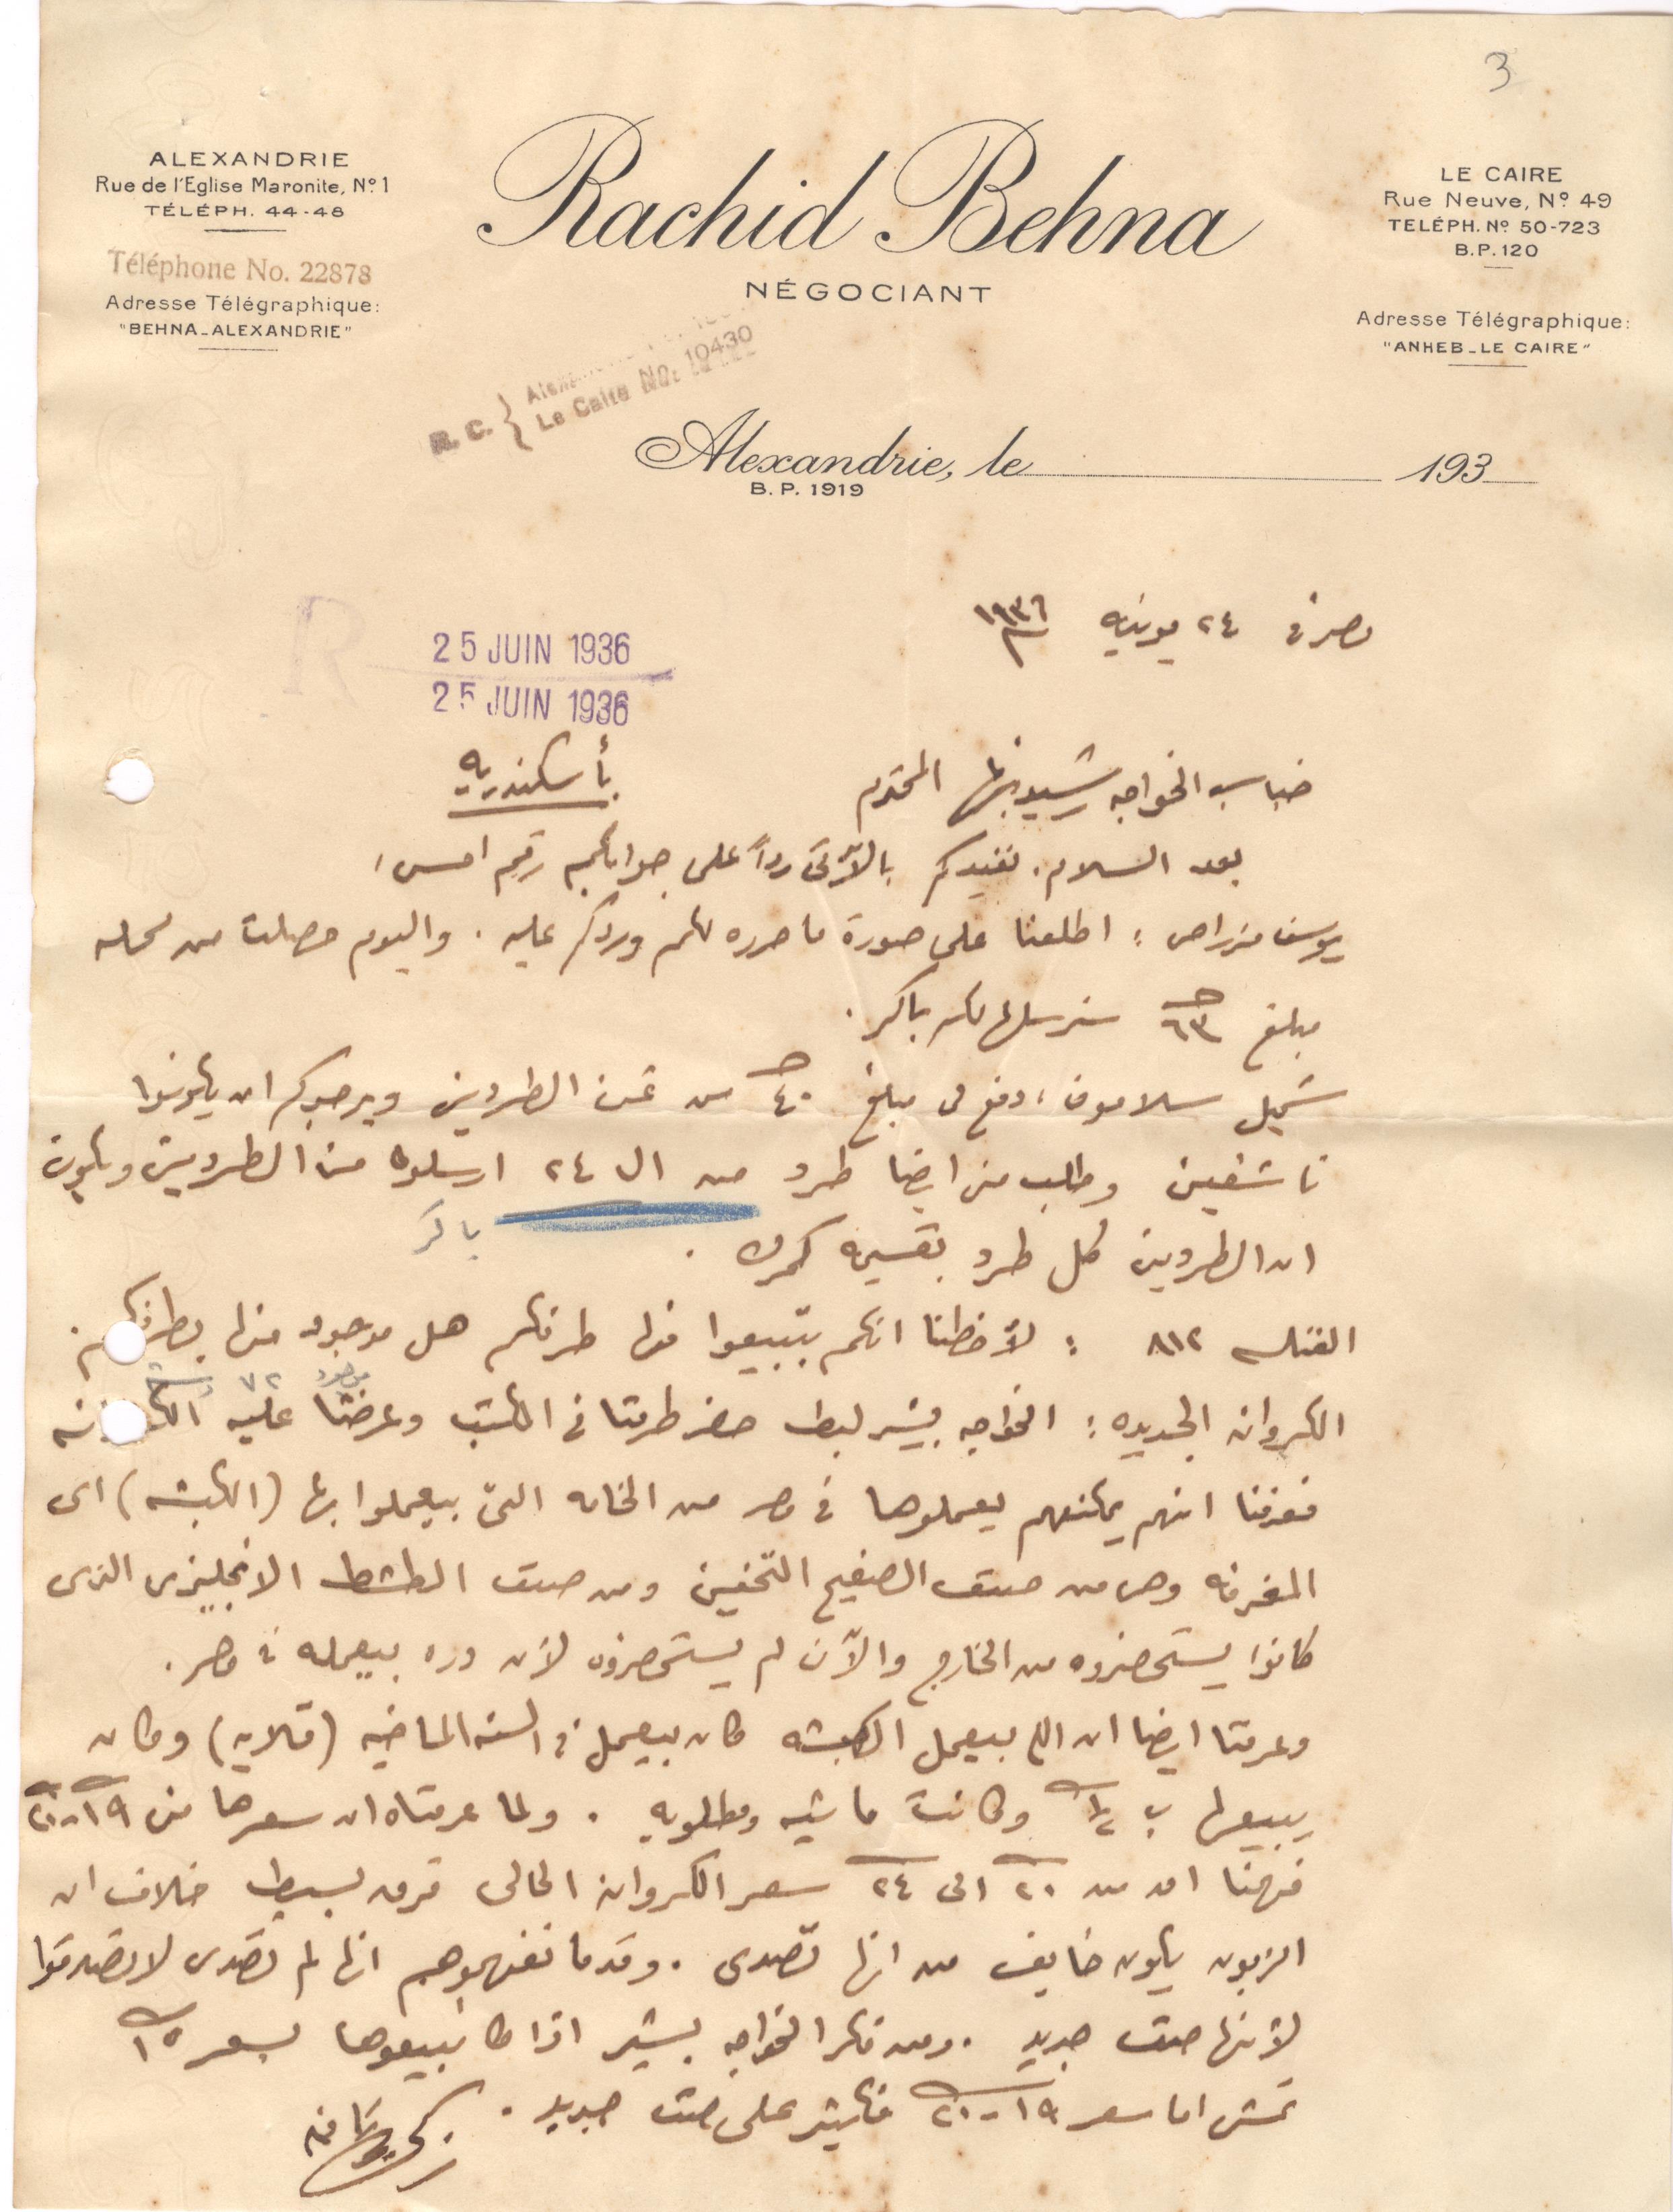 3
ALEXANDRIE
Rue de l'Eglise Maronite, Nº 1
TÉLÉPH. 44-48
Téléphone No. 22878
Adresse Télégraphique:
"BEHNA_ALEXANDRIE"
Rachid Behna
NÉGOCIANT
LE CAIRE
Rue Neuve, Nº 49
TELÉPH. Nº 50-723
B.P. 120
Adresse Télégraphique:
"ANHEB_LE CAIRE"
R. C. {
Le Caire No. 10430
Alexandrie, le 193
B. P. 1919
مصر في ٢٤ يونيه ١٩٣٦
R
25 JUIN 1936
25 JUIN 1936
جناب الخواجه رشيد بهنا المحترم
بأسكندريه
بعد السلام. نفيدكم بالآتى رداً على جوابكم رقم امس،
يوسف مزراحى : اطلعنا على صورة ما حرره لكم وردكم عليه . واليوم حصلت من محله
مبلغ ٦٣ سنرسلها لكم باكر .
شميل سلامون : دفع لى مبلغ ٤٠ من ثمن الطردين ويرجوكم ان يكونوا
ناشفين وطلب منى ايضا طرد من ال ٢٤ ارسلوه مع الطردين ويكون
باكر
ان الطردين كل طرد بقسيمه كمرك .
الفنلـه ٨١٢ : لاحظنا انكم بتبيعوا منها طرفكم هل موجود منها بطرفكم .
موجود ٧٢
الكروانه الجديده : الخواجه بيشر لبط حضر طرفنا فى المكتب وعرضنا عليه
فعرفنا انهم يمكنهم يعملوها فى مصر من الخامه التى بيعملوا بها (الكبشه) اى
المغرفه وهى من صنف الصفيح التخين ومن صنف الطشط الانجليزى الذى
كانوا يستحضروه من الخارج والآن لم يستحضروه لأن دره بيعمله فى مصر .
وعرفنا ايضا ان اللى بيعمل الكبشه كان بيعمل فى السنه الماضيه (قلايه) وكان
يبيعها ب وكانت ماشيه ومطلوبه . ولما عرفناه ان سعرها من ١٩ - ٢٠
فهمنا ان من ٢٠ الى ٢٤ سعر الكروانه الحالى فرق بسيط خلاف ان
الزبون يكون خايف من انها تصدى . وقدما تفهموهم انها لم تصدى لا يصدقوا
لأنها صنف جديد . ومن فكر الخواجه بشير اذا كا نبيعوها بسعر ١٥
تمشى اما سعر ١٩ - ٢٠ فكتير على صنف جديد .